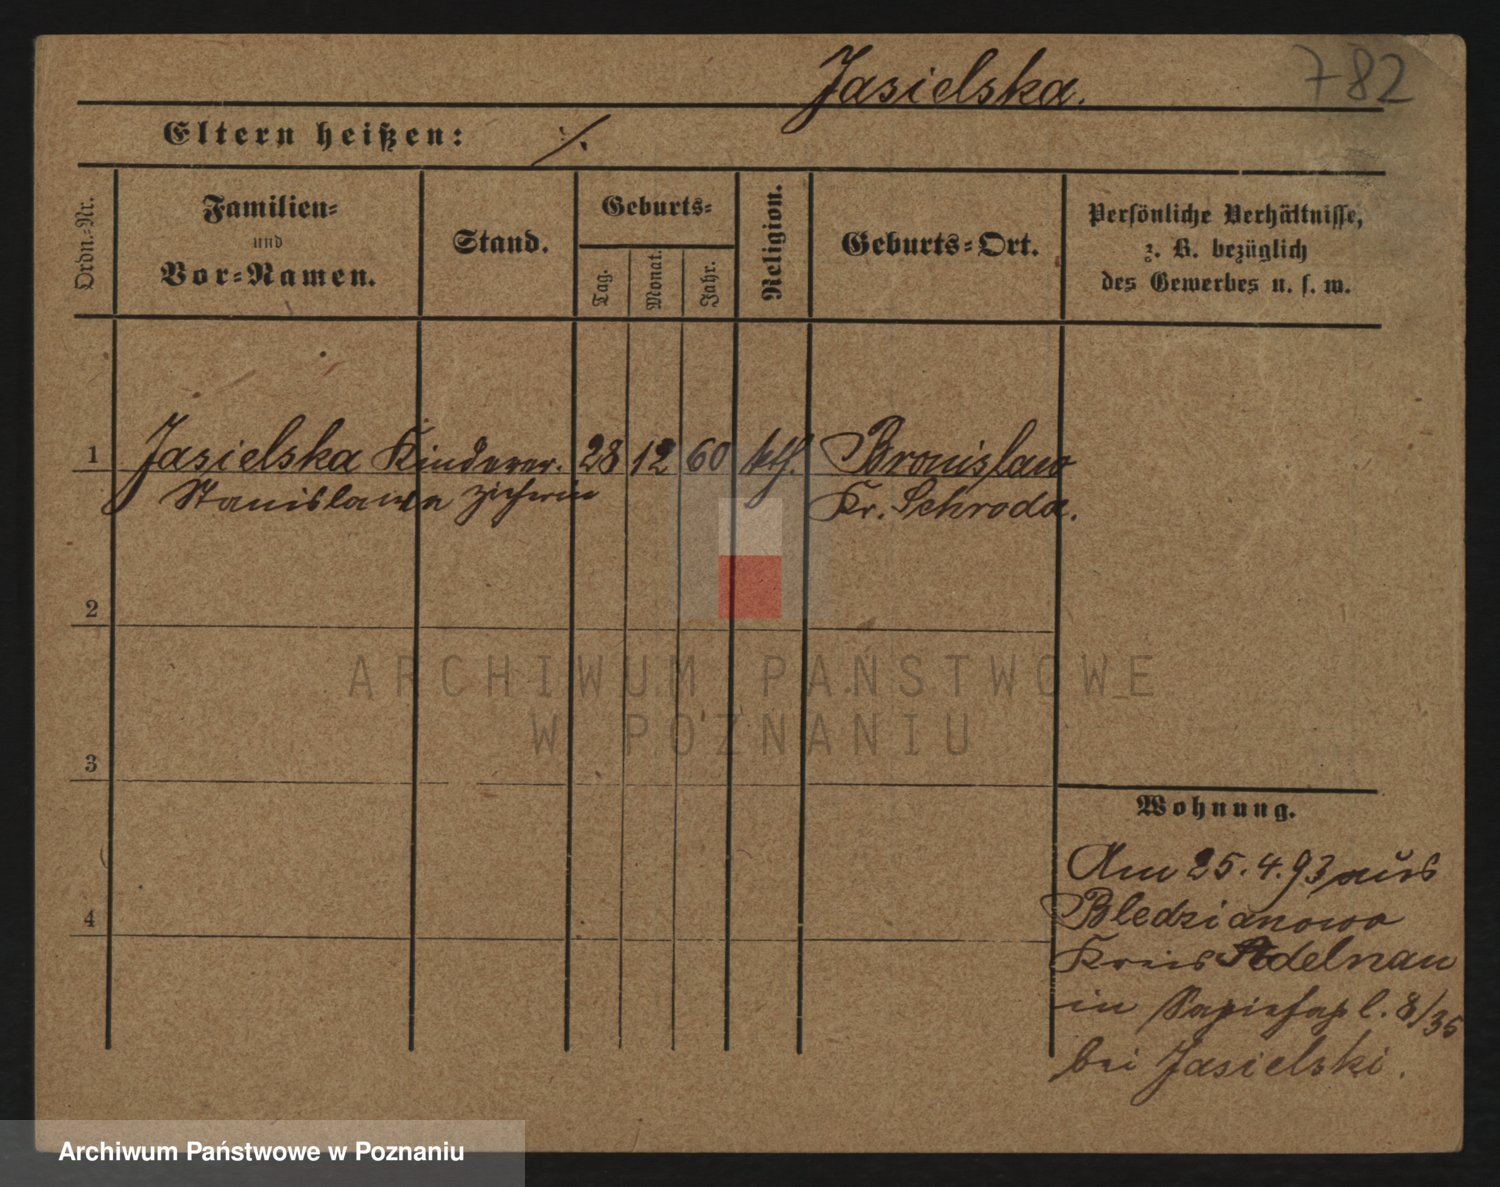 Jasielska.
782
Eltern heißen: ·/.
Ordn.-Nr.
Familien-
und
Vor-Namen.
Stand.
Geburts-
Tag.
Monat.
Jahr.
Religion.
Geburts-Ort.
Persönliche Verhältnisse,
z. B. bezüglich
des Gewerbes u. s. w.
1 Jasielska Kinderer- 28 12 60 kth. Bronislaw
Stanislawa zieherin Kr. Schroda.
2
3
4
Wohnung.
Am 25.4.93 aus
Bledzianowo
Kreis Adelnau
in Sapiehapl. 8/35
bei Jasielski.
ARCHIWUM PAŃSTWOWE
W POZNANIU
Archiwum Państwowe w Poznaniu